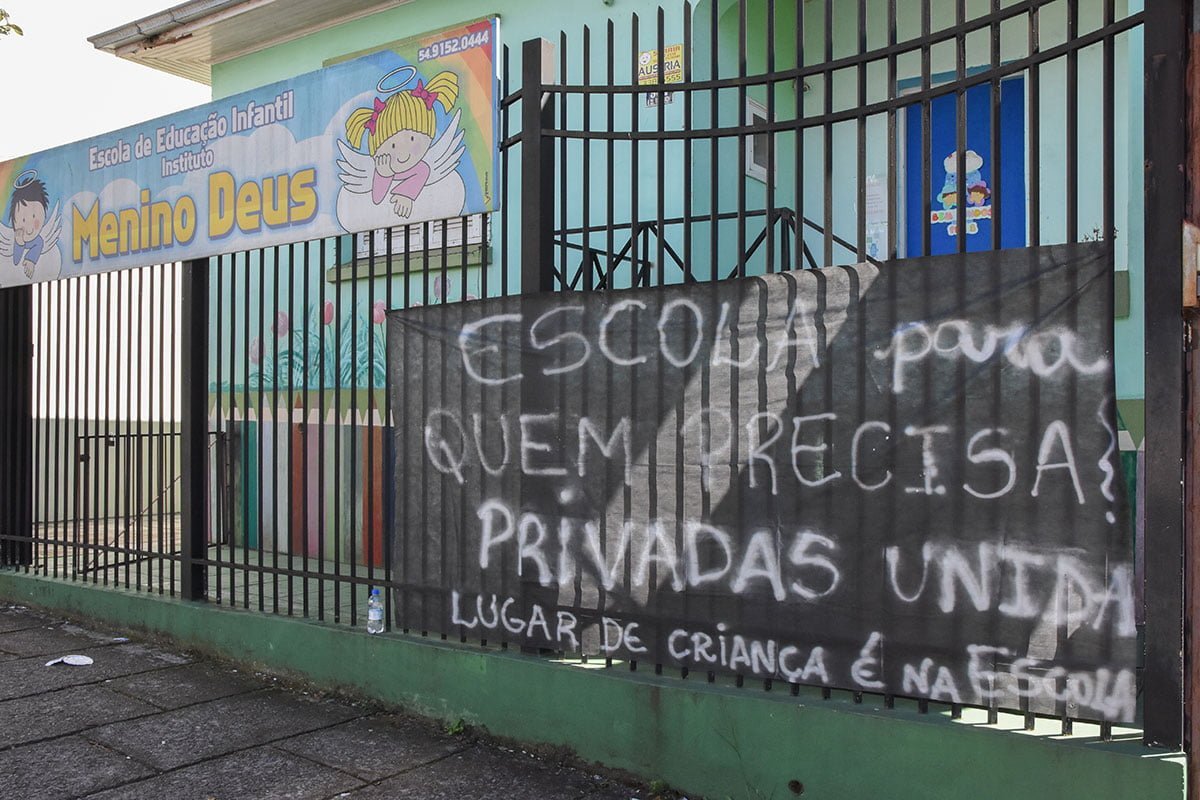 54.9152.0444
Escola de Educação Infantil
Instituto
Menino Deus
ESCOLA para
QUEM PRECISA!
PRIVADAS UNIDA
LUGAR DE CRIANÇA É NA ESCOLA